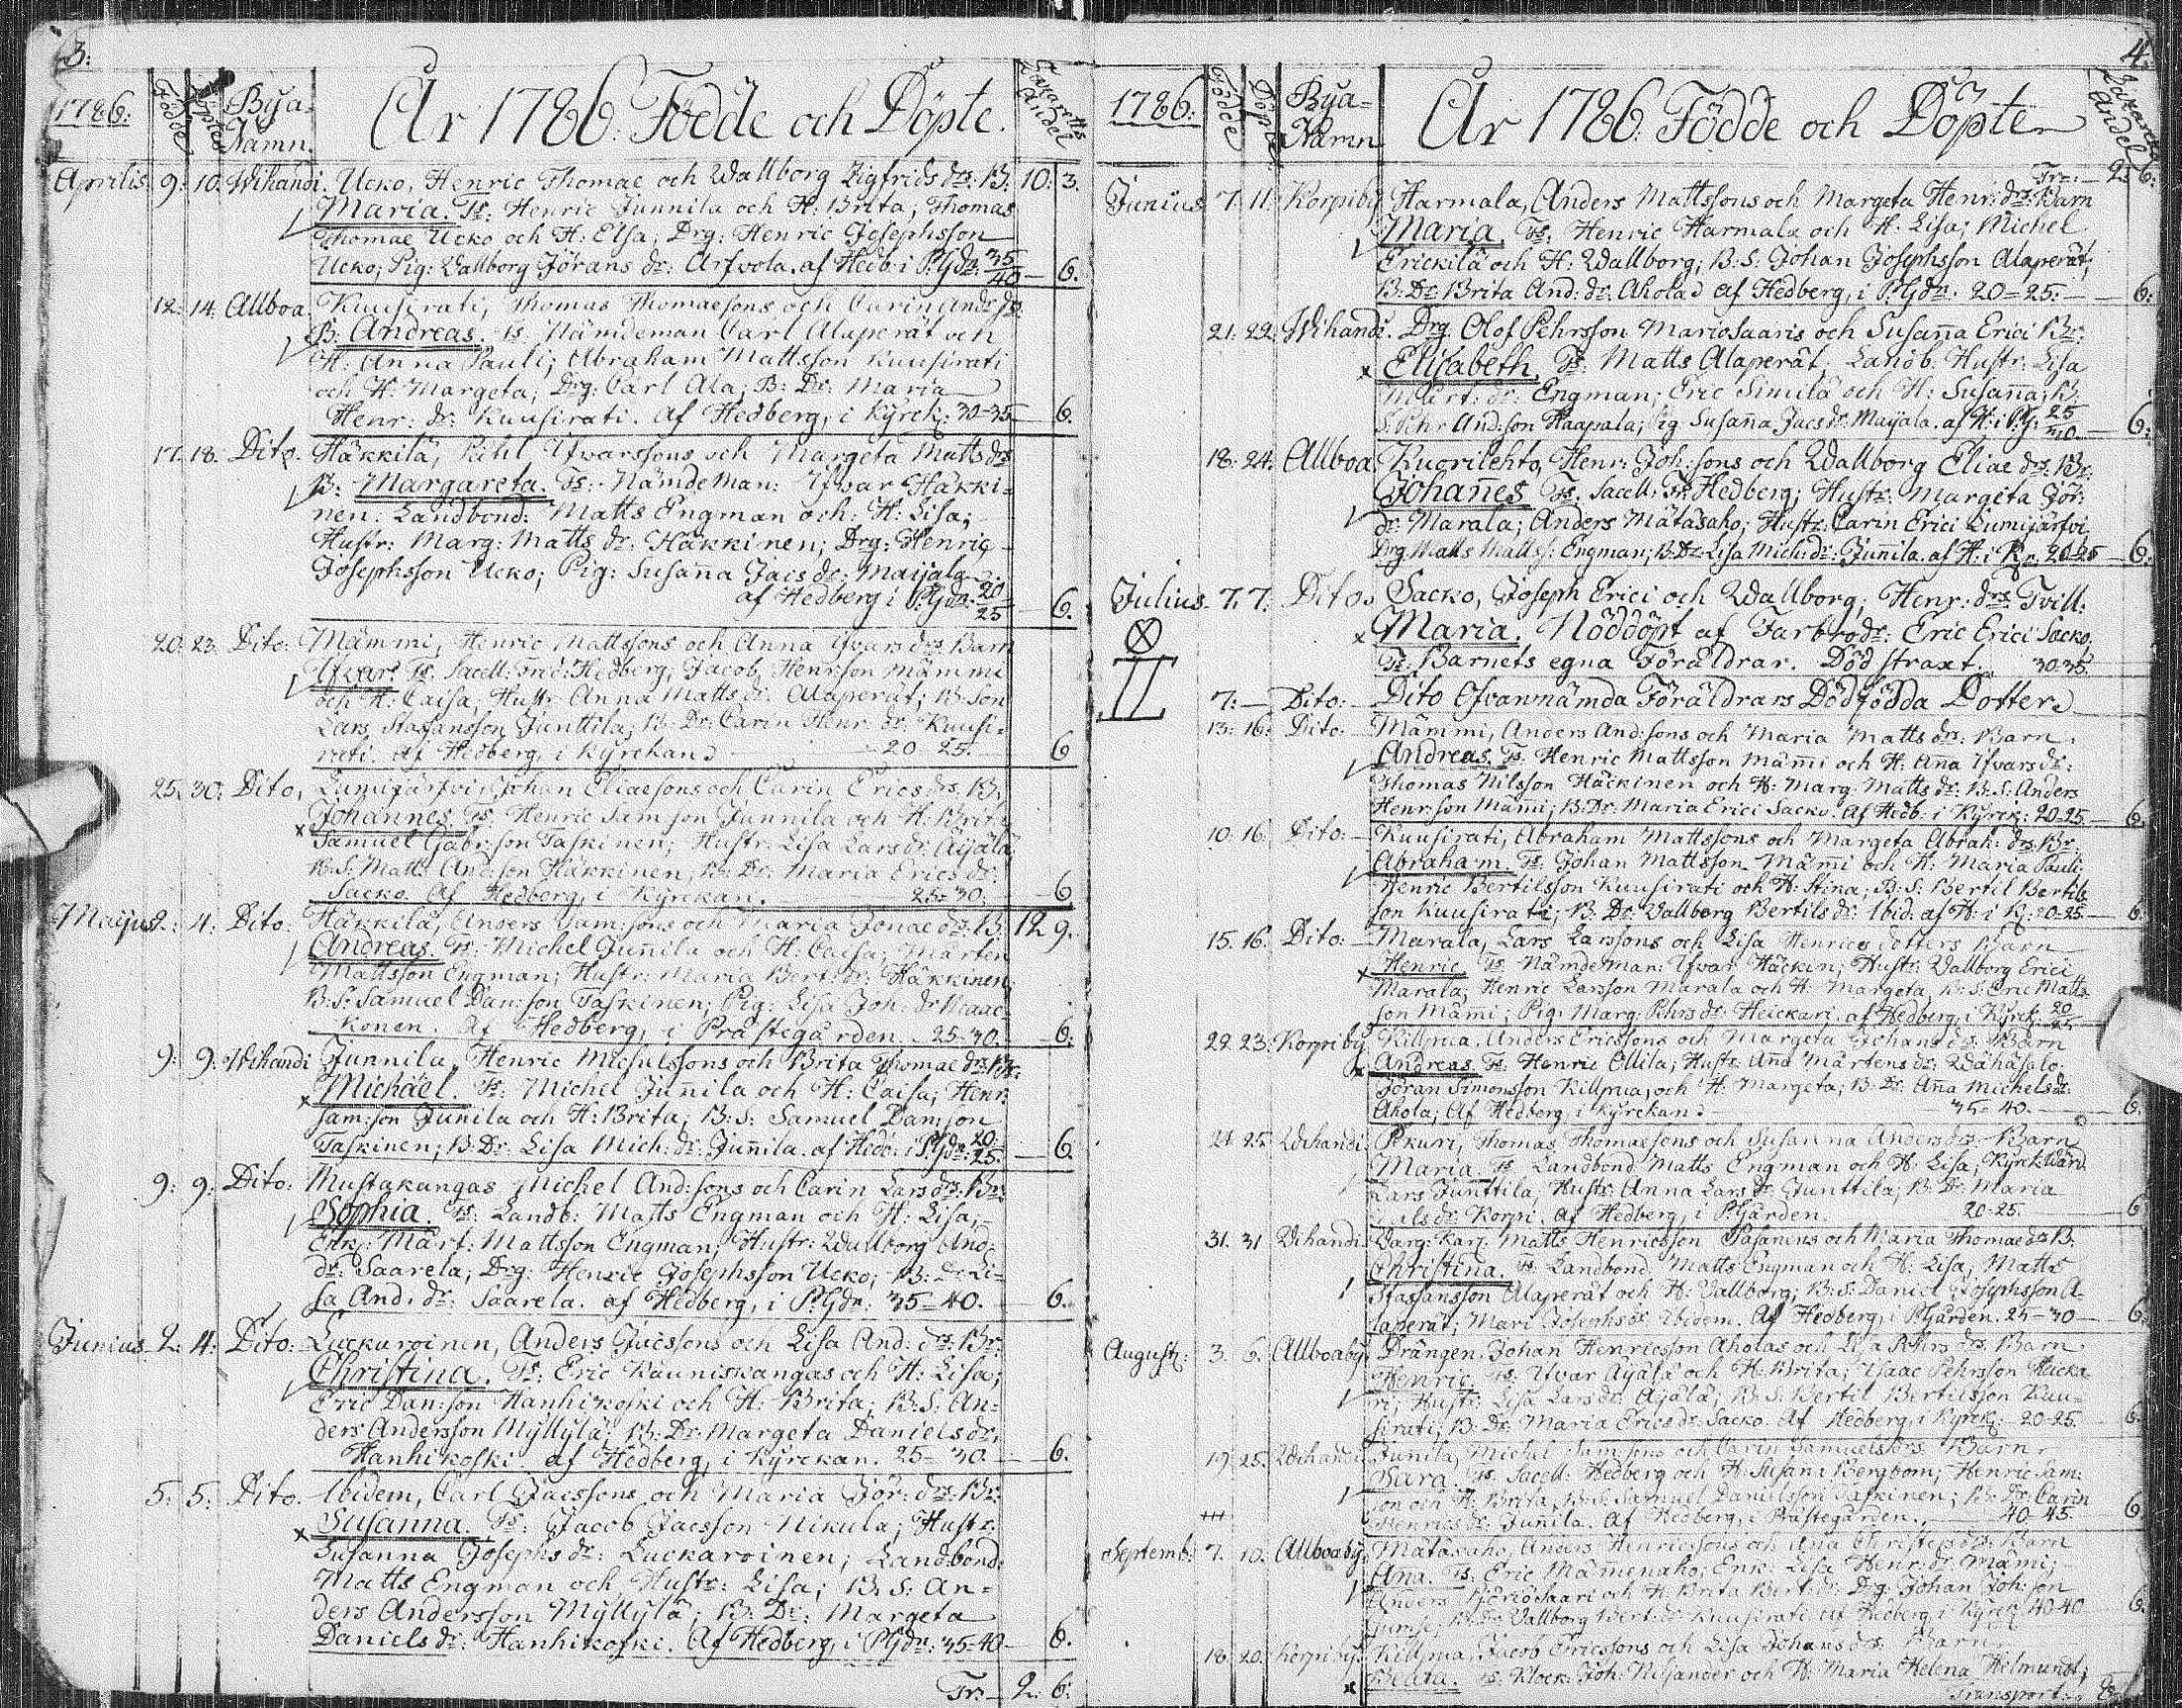 3:
1786:
Födde
Döpte
Bya-
Namn.
År 1786. Födde och Döpte.
Lazaretts
Andel
Aprilis 9: 10. Wihandi. Ucko, Henric Thomae och Wallborg Zigfrids drs: B: 10: 3.
Maria. Ts: Henric Junnila och H: Brita; Thomas
Thomae Ucko och H: Elsa; Drg: Henric Josephsson
Ucko; Pig: Wallborg Jörans dr: Arfvola. af Hedb: i P.Gdn: 35/40 — 6.
12: 14. Allboa. Kuusirati, Thomas Thomaesons och Carin And: drs:
B: Andreas. Ts: Nämdeman Carl Alaperät och
H: Anna Pauli; Abraham Mattsson Kuusirati
och H: Margeta; Drg: Carl Ala; B: Dr: Maria
Henr: dr: Kuusirati. af Hedberg, i Kyrck: 30-35 — 6.
17. 18. Dito. Häkkilä, Påhl Ifwarssons och Margeta Matts drs
B: Margareta. Ts: Nämdeman: Ifwar Häkki-
nen. Landbond: Matts Engman och H: Lisa;
Hustr: Marg: Matts dr: Häkkinen; Drg: Henric
Josephsson Ucko; Pig: Susanna Jacs dr: Maijala
af Hedberg i P.Gdn: 20/25 — 6.
20. 23. Dito: Mämmi, Henric Mattssons och Anna Ifvars drs Barn
Ifvar. Ts: Sacell: Fred: Hedberg, Jacob Henrsson Mämmi
och H: Caisa; Hustr: Anna Matts dr: Alaperät; B: Son
Lars Staffansson Junttila; B: Dr: Carin Henr: dr: Kuusi-
rati. af Hedberg, i Kyrckan — 20 25. — 6
25. 30. Dito, Lumijärfvi, Johan Eliaesons och Carin Erics drs: B:
Johannes. Ts: Henric Samson Junnila och H: Brita
Samuel Gabr:son Taskinen; Hustr: Lisa Lars dr: Äijälä
B: S: Matts And:son Häkkinen, B: Dr: Maria Erics dr:
Sacko. Af Hedberg, i Kyrckan. — 25-30: — 6
Maijus 2: 4: Dito: Häkkilä, Anders Sam:sons och Maria Jonae drs: B: 12 9.
Andreas. Ts: Michel Junnila och H: Caisa; Mårten
Mattsson Engman; Hustr: Maria Bert: dr: Häkkinen,
B: S: Samuel Dan:son Taskinen; Pig: Lisa Joh: dr Waac-
konen. Af Hedberg, i Prästegården. 25-30. — 6:
9: 9: Wihandi Junnila, Henric Michelssons och Brita Thomae drs: Br:
Michäel. Ts: Michel Junnila och H: Caisa; Henr:
Sam:son Junila och H: Brita; B: S: Samuel Damson
Taskinen; B: Dr: Lisa Mich: dr: Junnila. af Hedb: i P.Gdn: 20/25. — 6
9: 9: Dito: Mustakangas Michel And:sons och Carin Lars drs: Br:
Sophia. Ts: Landb: Matts Engman och H: Lisa;
Enk: Märt: Mattsson Engman; Hustr: Wallborg And:
dr: Saarela; Drg: Henric Josephsson Ucko; B: Dr: Li-
sa And: dr: Saarela. af Hedberg, i P.Gdn: 35-40. — 6.
Junius 2: 4: Dito: Luckaroinen, Anders Jacssons och Lisa And: drs: Br:
Christina. Ts: Eric Kauniskangas och H: Lisa;
Eric Dan:son Hanhikoski och H: Brita; B: S: An-
ders Andersson Myllylä; B: Dr: Margeta Daniels dr:
Hanhikoski. af Hedberg, i Kyrckan. 25-30. — 6.
5: 5: Dito. Ibidem, Carl Jacssons och Maria Jör: drs: Br:
Susanna. Ts: Jacob Jacsson Nikula; Hustr:
Susanna Josephs dr: Luckaroinen; Landbond:
Matts Engman och Hustr: Lisa; B: S: An-
ders Andersson Myllylä; B: Dr: Margeta
Daniels dr: Hanhikoski. Af Hedberg, i P.Gdn: 35-40 — 6.
Tr: — 2: 6:
4.
1786:
Födde
Döpte
Bya-
Namn
År 1786. Födde och Döpte
Lazaretts
Andel
Tr: — 2: 6:
Junius 7. 11. Korpiby Harmala, Anders Mattssons och Margeta Henr: drs: Barn
Maria. Ts: Henric Harmala och H: Lisa; Michel
Erickilä och H: Wallborg; B: S: Johan Josephsson Alaperät;
B: Dr: Brita And: dr: Ahola af Hedberg, i P.Gdn. 20-25: — 6:
21: 22: Wihandi. Drg Olof Pehrsson Mariosaaris och Susanna Erici Br:
Elisabeth. Ts: Matts Alaperät, Landb: Hustr: Lisa
Märt: dr: Engman; Eric Similä och H: Susanna; B:
S: Pehr And:son Haapala; Pig Susanna Jacs dr: Maijala. af H: i P.G: 25/30. — 6:
18: 24: Allboa. Kuorilehto, Henr: Joh:sons och Wallborg Eliae drs: Br:
Johannes Ts. Sacell: Fr: Hedberg; Hustr: Margeta Jör:
dr: Marala; Anders Mätäsaho; Hustr: Carin Erici Lumijärfvi
Drg Matts Matts: Engman; B: Dr: Lisa Mich: dr: Junnila. af H: i K: 20-25 — 6:
Julius 7. 7. Dito. Sacko, Joseph Erici och Wallborg, Henr: drs Tvill:
Maria. Nöddöpt af Farbrodr: Eric Erici Sacko,
Ts: Barnets egna Föräldrar. Död straxt. 30-35.
7: — Dito: — Dito Ofvannämda Föräldrars Dödfödda Dotter
13: 16: Dito: Mämmi, Anders And:sons och Maria Matts drs: Barn
Andreas. Ts: Henric Mattsson Mämmi och H: Anna Ifvars dr:
Thomas Nilsson Häckinen och H: Marg: Matts dr: B: S: Anders
Henr:son Mämmi; B: Dr: Maria Erici Sacko. Af Hedb: i Kyrck: 20-25. — 6
10. 16. Dito: Kuusirati, Abraham Mattssons och Margeta Abrah: drs: Br:
Abraham. Ts: Johan Mattsson Mämi och H: Maria Pauli;
Henric Bertilsson Kuusirati och H: Stina; B: S: Bertil Bertils-
son Kuusirati; B: Dr: Wallborg Bertils dr: Ibid: af H: i K: 20-25 — 6:
15. 16. Dito: Marala, Lars Larssons och Lisa Henrics dotters Barn
Henric. Ts: Nämdeman: Ifvar Häckin; Hustr: Wallborg Erici
Marala; Henric Larsson Marala och H: Margeta, B: S: Eric Matts-
son Mämi; Pig: Marg: Pehrs dr: Heickari. af Hedberg, i Kyrck: 20/25
22. 23: Korpiby Killpua, Anders Ericssons och Margeta Johans drs: Barn
Andreas. Ts: Henric Ollila; Hustr: Anna Mårtens dr: Wähäsalo;
Jöran Simonsson Killpua, och H: Margeta; B: Dr: Anna Michels dr:
Ahola; Af Hedberg, i Kyrckan — 35-40. — 6:
24. 25. Wihandi. Pekuri, Thomas Thomaesons och Susanna Anders drs: Barn
Maria. Ts: Landbond Matts Engman och H: Lisa; Kyrck.Wärd.
Lars Junttila, Hustr: Anna Lars dr: Junttila; B: Dr: Maria
Nils dr: Korpi. af Hedberg, i P.Gården. 20-25. — 6
31. 31 Wihandi. Warg: Karl: Matts Henricsson Pasanens och Maria Thomae drs B:
Christina. Ts: Landbond Matts Engman och H: Lisa; Matts
Staffansson Alaperät och H: Wallborg; B: S: Daniel Josephsson A-
laperät; Mari Josephs dr: Ibidem. Af Hedberg, i P.Gården. 25-30 — 6.
August: 3. 6. Allboaby Drängen Johan Henricsson Aholas och Lisa Pehrs drs: Barn
Henric. Ts: Ifvar Äyälä och H: Brita; Isaac Pehrsson Hucka-
ri; Hustr: Lisa Lars dr: Äyälä; B: S: Bertil Bertilsson Kuu-
sirati; B: Dr: Maria Erics dr: Sacko. Af Hedberg, i Kyrck: 20-25. — 6.
19. 25. Wihandi Junnila, Michel Samsons och Carin Samuels drs: Barn
Sara. Ts: Sacell: Hedberg och H: Susan: Bergbom; Henric Sam:
son och H: Brita, B: S: Samuel Danielsson Taskinen; B: Dr: Carin
Henrics dr: Junnila. Af Hedberg, i Prästegården. — 40-45. 6.
Septemb: 7. 10. Allboaby Mätäsaho, Anders Henricssons och Ana Christers drs: Barn
Ana. Ts: Eric Mämmenaho; Enk: Lisa Henr: dr: Mämi;
Anders och H: Brita Bert: dr: Drg: Johan Joh:son
B: Dr: Wallborg Bert: dr: Kuusirati. af Hedberg, i Kyrck: 40-40 — 6.
18. 20. Korpiby. Killpua, Jacob Ericssons och Lisa Johans drs: Barn
Beata. Ts: Klock: Joh: Kejsander och H: Maria Helena Helmundt;
Transport: